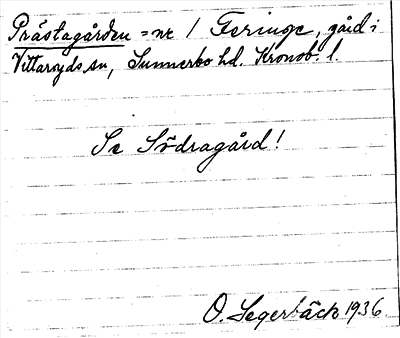 Prästagården = nr 1 Feringe, gård i
Vittaryds sn, Sunnerbo hd. Kronob. l.
Se Södragård!
O. Segerbäck 1936